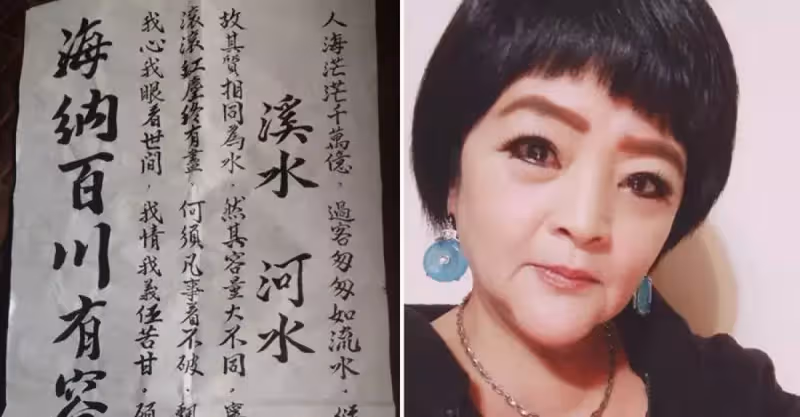 人海茫茫千萬億，過客匆匆如流水，
溪水 河水
故其質相同為水，然其容量大不同，
滾滾紅塵終有盡，何須凡事看不破，
我心我眼看世間，我情我義任苦甘，
海納百川有容